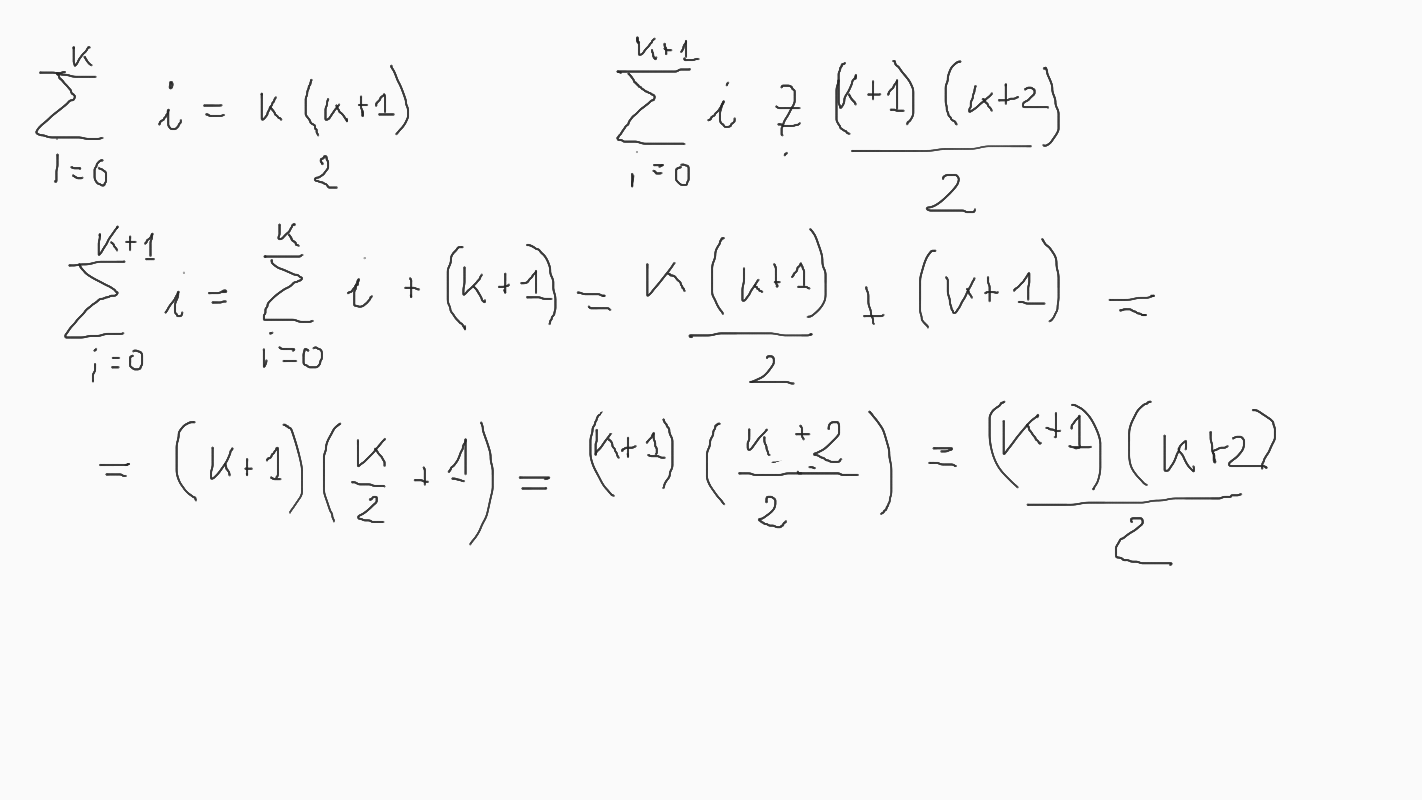 \sum_{i=0}^{k} i = \frac{k(k+1)}{2} \quad \sum_{i=0}^{k+1} i \stackrel{?}{=} \frac{(k+1)(k+2)}{2}
\sum_{i=0}^{k+1} i = \sum_{i=0}^{k} i + (k+1) = \frac{k(k+1)}{2} + (k+1) =
= (k+1)\left(\frac{k}{2}+1\right) = (k+1)\left(\frac{k+2}{2}\right) = \frac{(k+1)(k+2)}{2}